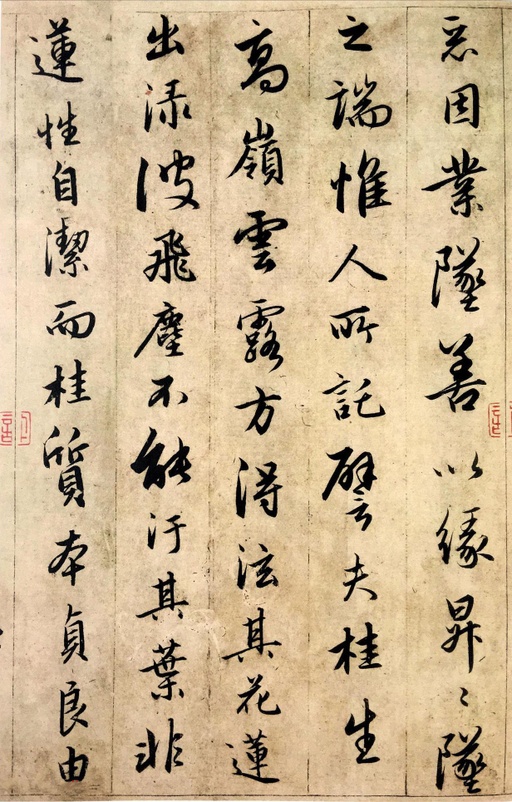 惡因業墜善以緣昇〻墜
之端惟人所託譬夫桂生
高嶺雲露方得泫其花蓮
出淥波飛塵不能汙其葉非
蓮性自潔而桂質本貞良由